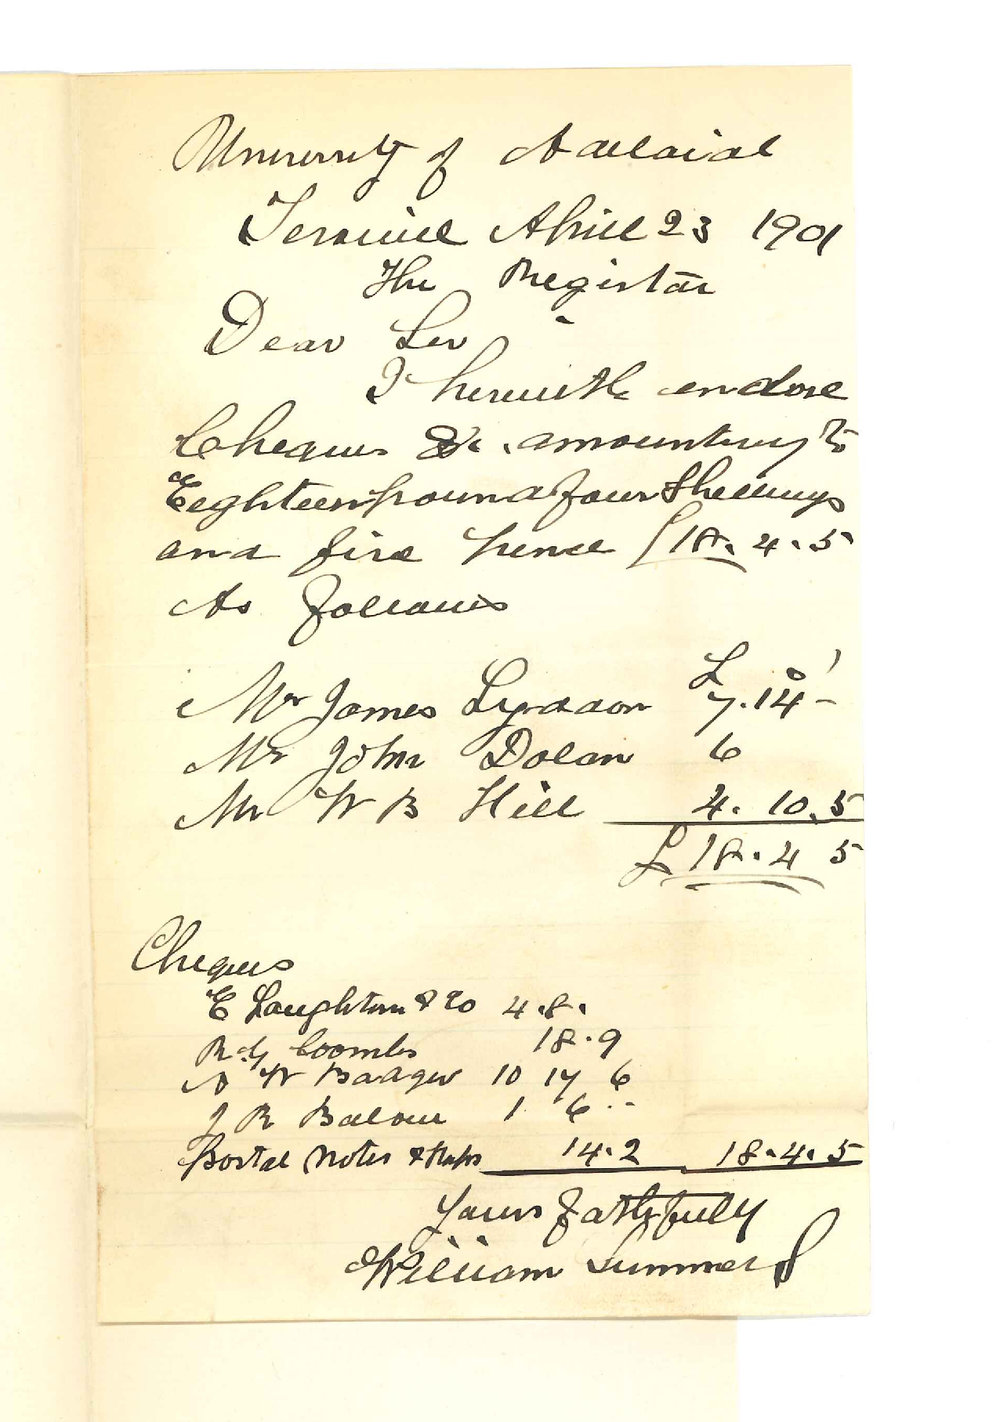 University of Adelaide
Terowie April 23 1901
The Registrar
Dear Sir
I herewith enclose
Cheques &c. amounting to
Eighteen pound four Shillings
and five pence £18.4.5
As follows
£ s
Mr James Lyddon 7.14 -
Mr John Dolan 6
Mr W B Hill 4.10.5
£18.4 5
Cheques
E Laughton & Co 4.8.
R G Coombs 18.9
A W Badger 10 17 6
J R Balour 1 6 ..
Postal Notes & 14.2 18.4.5
Yours faithfully
William Summers